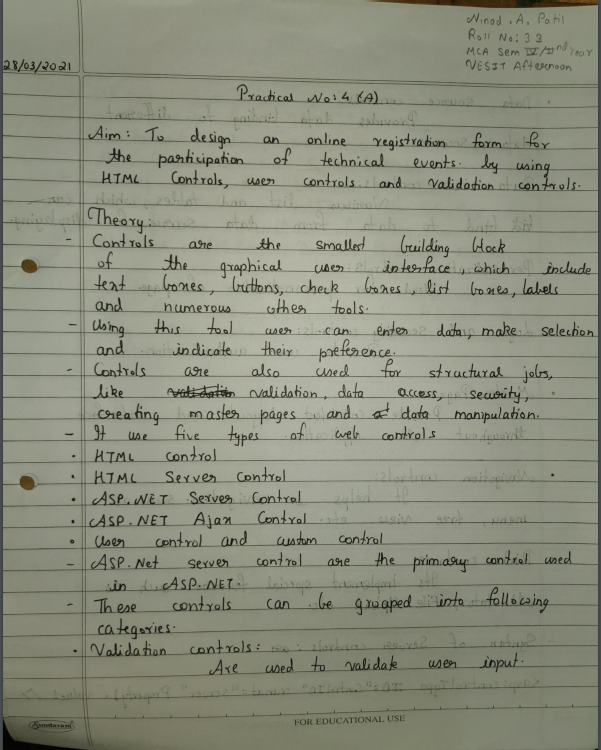 Ninad . A. Patil
Roll No: 33
MCA Sem IV/IInd Year
VESIT Afternoon
28/03/2021
Practical No: 4 (A)
Aim: To design an online registration form for
the participation of technical events. by using
HTML Controls, user controls and validation controls.
Theory:
- Controls are the smallest building block
of the graphical user interface, which include
text boxes, buttons, check boxes, list boxes, labels
and numerous other tools.
- Using this tool user can enter data, make selection
and indicate their preference.
- Controls are also used for structural jobs,
like validation, data access, security,
creating master pages and data manipulation.
- It use five types of web controls
• HTML control
• HTML Server Control
• ASP.NET Server Control
• ASP.NET Ajax Control
• User control and custom control
- ASP.Net server control are the primary control used
in ASP.NET.
- These controls can be grouped into following
categories.
• Validation controls:
Are used to validate user input.
Sundaram
FOR EDUCATIONAL USE